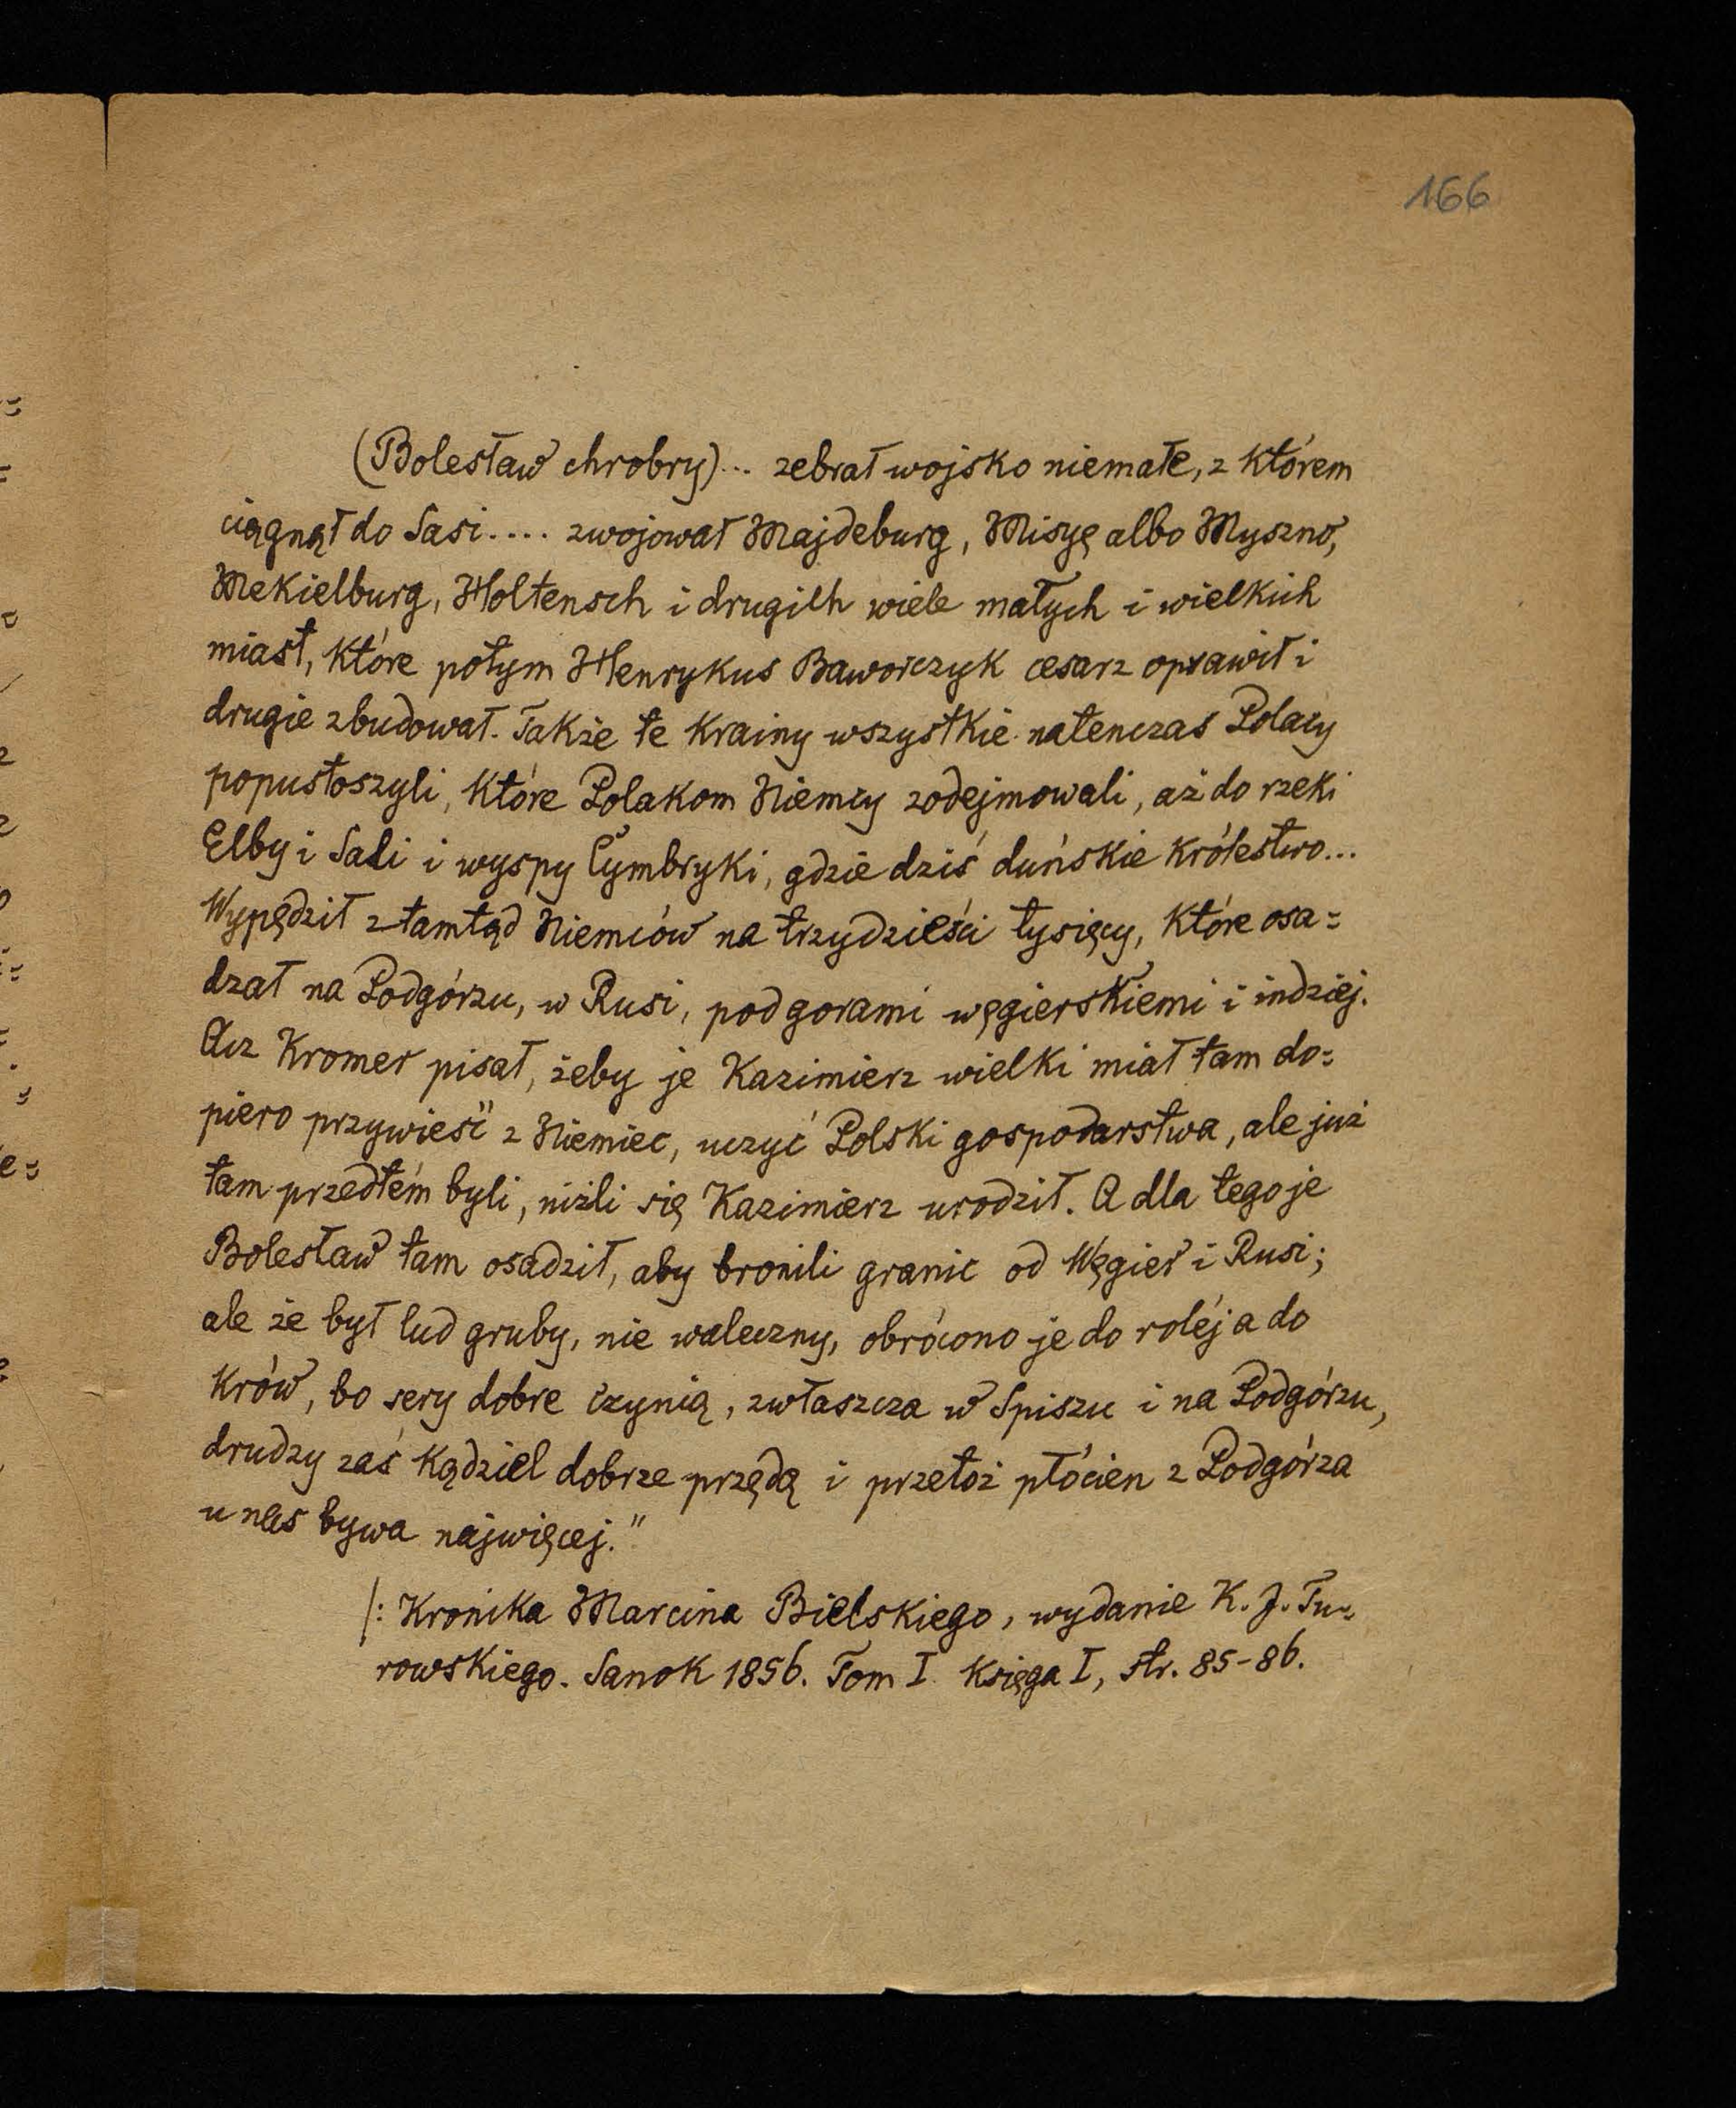 166
(Bolesław chrobry)... zebrał wojsko niemałe, z którem
ciągnął do Sasi.... zwojował Majdeburg, Misyę albo Myszno,
Mekielburg, Holtensch i drugich wiele małych i wielkich
miast, które potym Henrykus Baworczyk cesarz oprawił i
drugie zbudował. Także te krainy wszystkie natenczas Polacy
popustoszyli, które Polakom Niemcy zodejmowali, aż do rzeki
Elby i Sali i wyspy Cymbryki, gdzie dziś duńskie królestwo...
Wypędził ztamtąd Niemców na trzydzieści tysięcy, które osa=
dzał na Podgórzu, w Rusi, pod gorami węgierskiemi i indziej.
Acz Kromer pisał, żeby je Kazimierz wielki miał tam do=
piero przywieść z Niemiec, uczyć Polski gospodarstwa, ale już
tam przedtém byli, niżli się Kazimierz urodził. A dla tego je
Bolesław tam osadził, aby bronili granic od Węgier i Rusi;
ale że był lud gruby, nie waleczny, obrócono je do roléj a do
krów, bo sery dobre czynią, zwłaszcza w Spiszu i na Podgórzu,
drudzy zaś kądziel dobrze przędą i przetoż płócien z Podgórza
u nas bywa najwięcej."
/: Kronika Marcina Bielskiego, wydanie K. J. Tu=
rowskiego. Sanok 1856. Tom I. Księga I, str. 85-86.